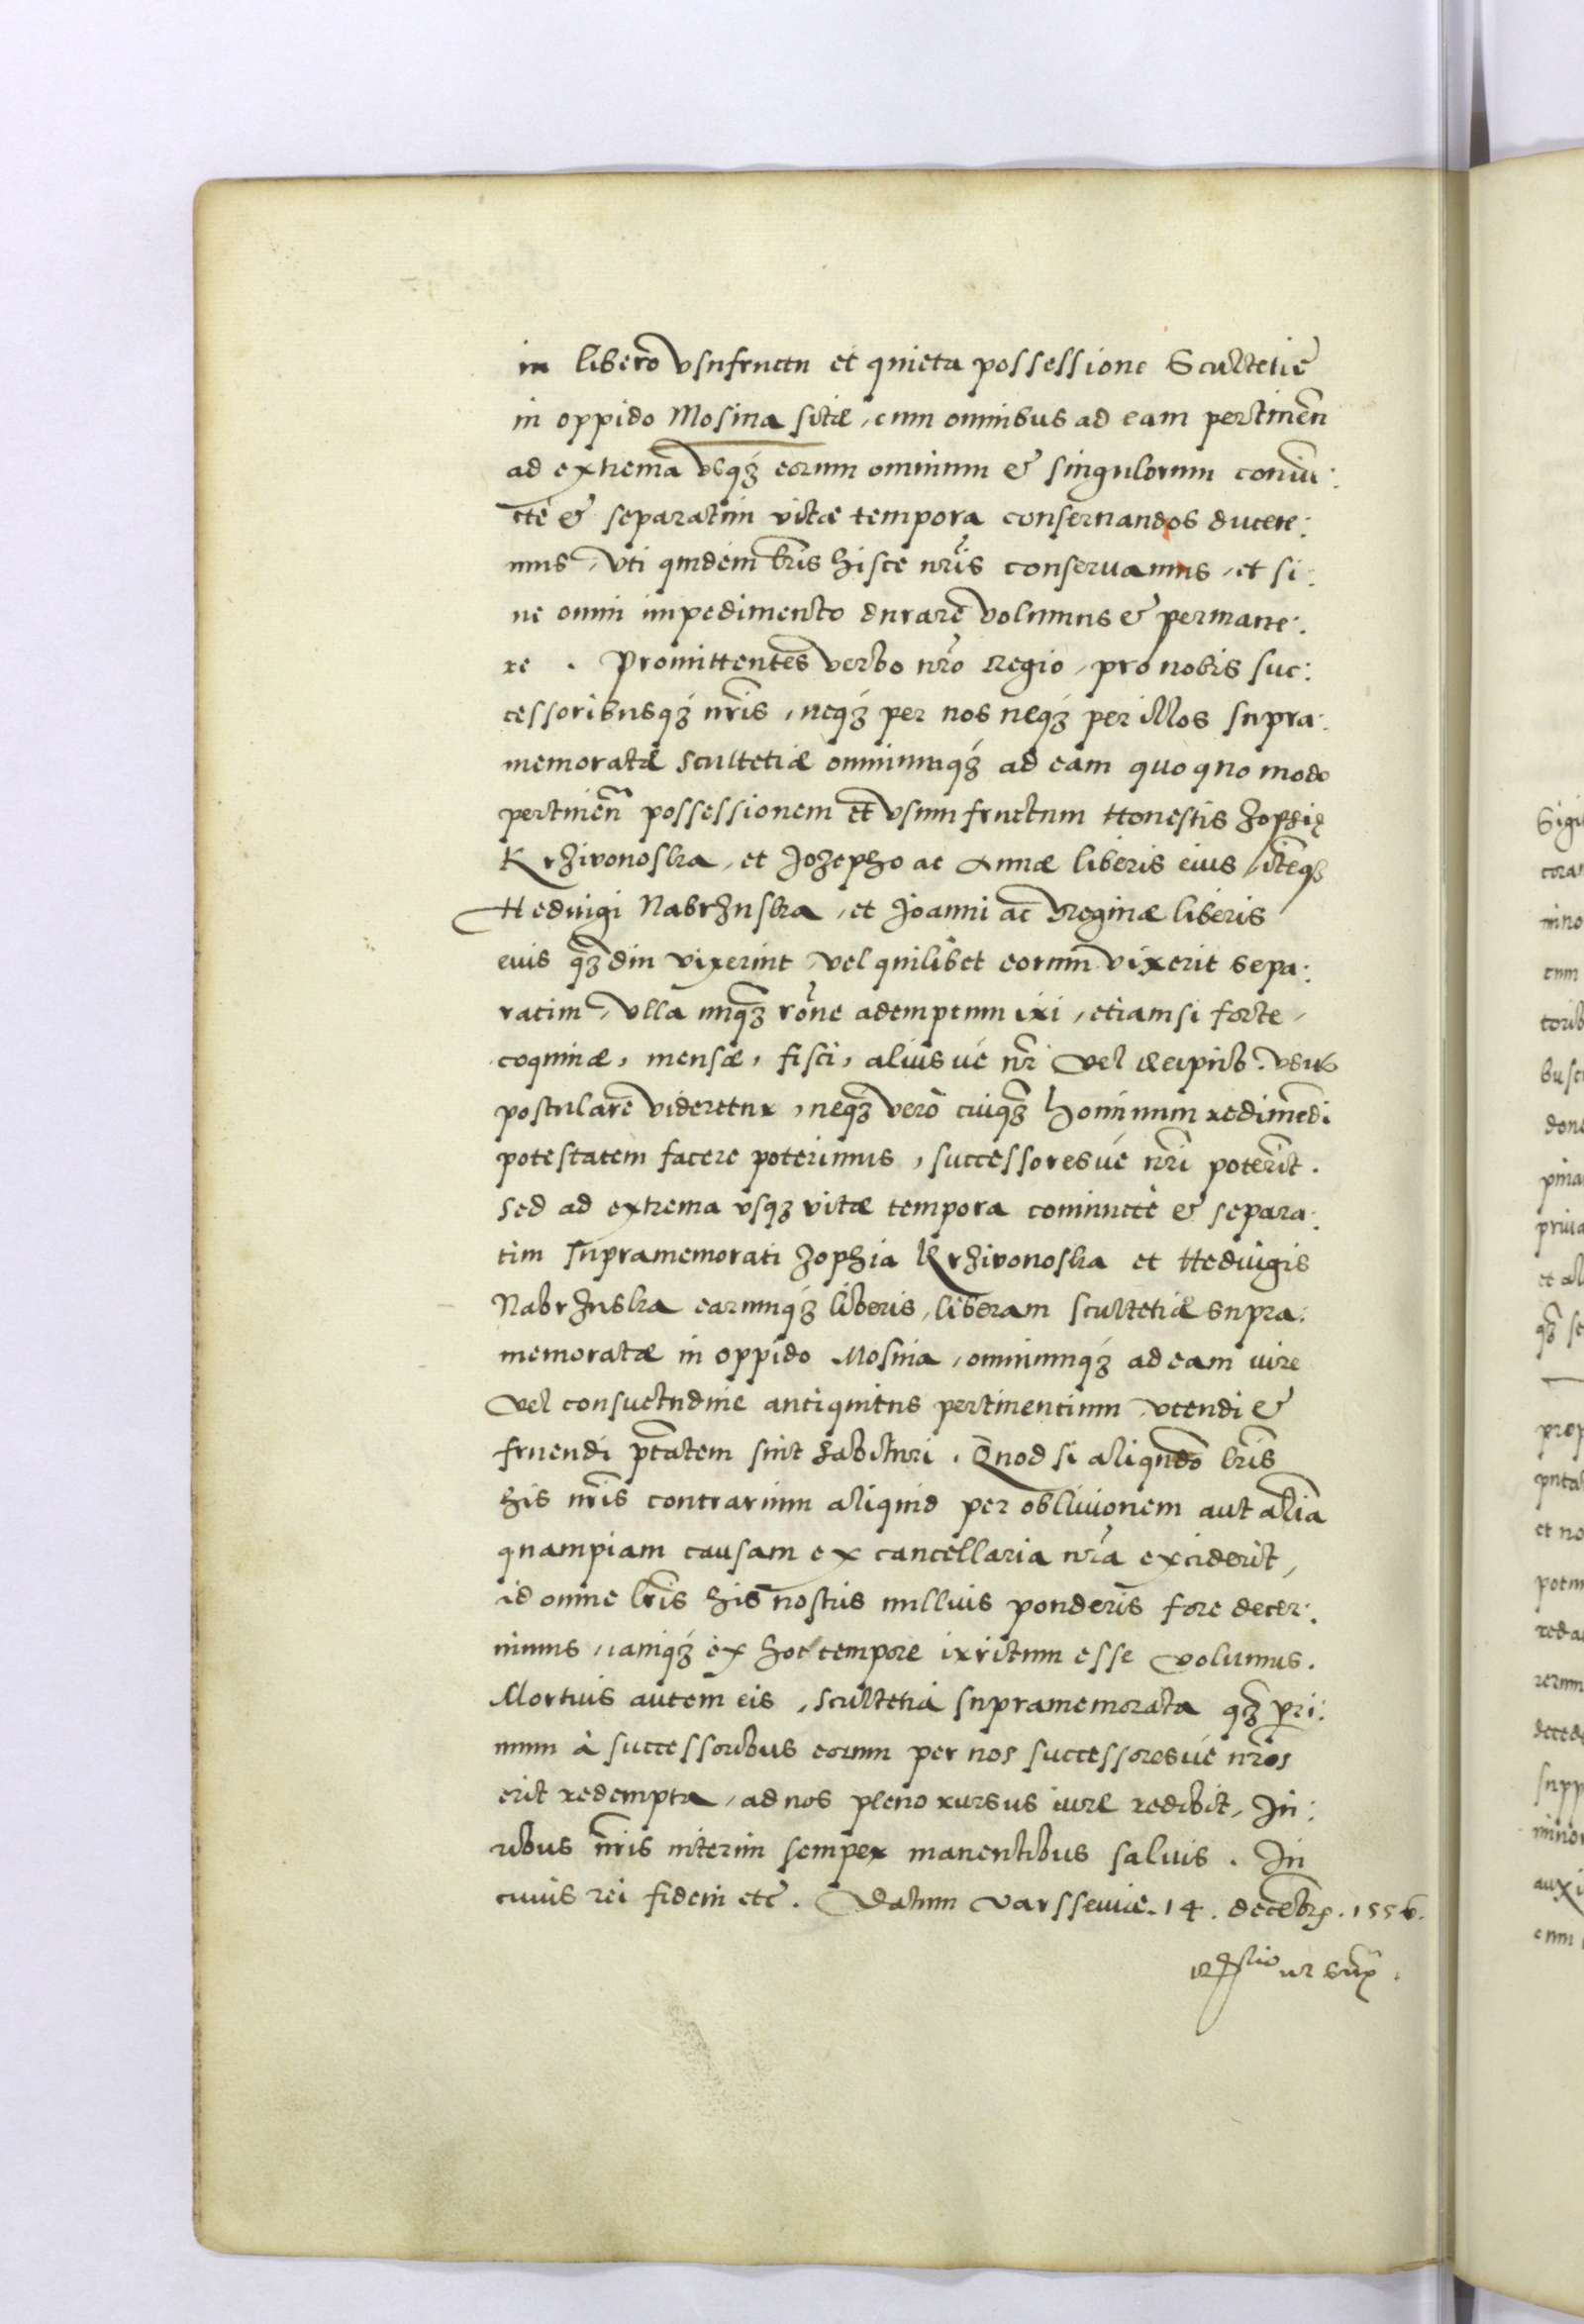 in libero vsufructu et quieta possessione Scultetie
in oppido Mosina sitæ, cum omnibus ad eam pertineñ
ad extrema vsqȝ eorum omnium & singulorum coniu:
cte & separatim vitæ tempora conseruandos ducere:
mus, vti quidem lr̃is hisce nr̃is conseruamus, et si:
ne omni impedimento durare volumus & permane:
re. Promittentes verbo nr̃o Regio, pro nobis suc:
cessoribusqȝ nr̃is, neqȝ per nos neqȝ per illos supra:
memoratæ scultetiæ omniumqȝ ad eam quoquo modo
pertineñ possessionem et vsumfructum Honestis Zophię
Krziwonoska, et Jozepho ac Annæ liberis eius, itẽqȝ
Heduigi Nabrzuska, et Joanni ac Reginæ liberis
eius qȝdiu vixerint, vel quilibet eorum vixerit sepa:
ratim, vlla unqȝ rõne ademptum iri, etiamsi forte,
coquinæ, mensæ, fisci, alius ue nr̃i vel Reipub. vsus
postulare videretur, neqȝ vero cuiqȝ hominum redimẽdi
potestatem facere poterimus, successores ue nr̃i poterĩt.
sed ad extrema vsqȝ vitæ tempora coniuncte & separa:
tim supramemorati Zophia Krziwonoska et Heduigis
Nabrzuska earumqȝ liberis, liberam scultetiæ supra:
memoratæ in oppido Mosina, omniumqȝ ad eam iure
vel consuetudine antiquitus pertinentium, vtendi &
fruendi ptãtem sint habituri. Quod si aliquãdo lr̃is
his nr̃is contrarium aliquid per obliuionem aut aliã
quampiam causam ex cancellaria nr̃a exciderit,
id omne lr̃is his nostris nullius ponderis fore decer:
nimus, iamqȝ ex hoc tempore irritum esse volumus.
Mortuis autem eis, scultetia supramemorata qȝ pri:
mum à successoribus eorum per nos successores ue nr̃os
erit redempta, ad nos pleno rursus iure redibit, Iu:
ribus nr̃is interim semper manentibus saluis. In
cuius rei fidem etc. Datum Varsseuiæ. 14. decẽbrꝭ. 1556.
ut suprꝭ.